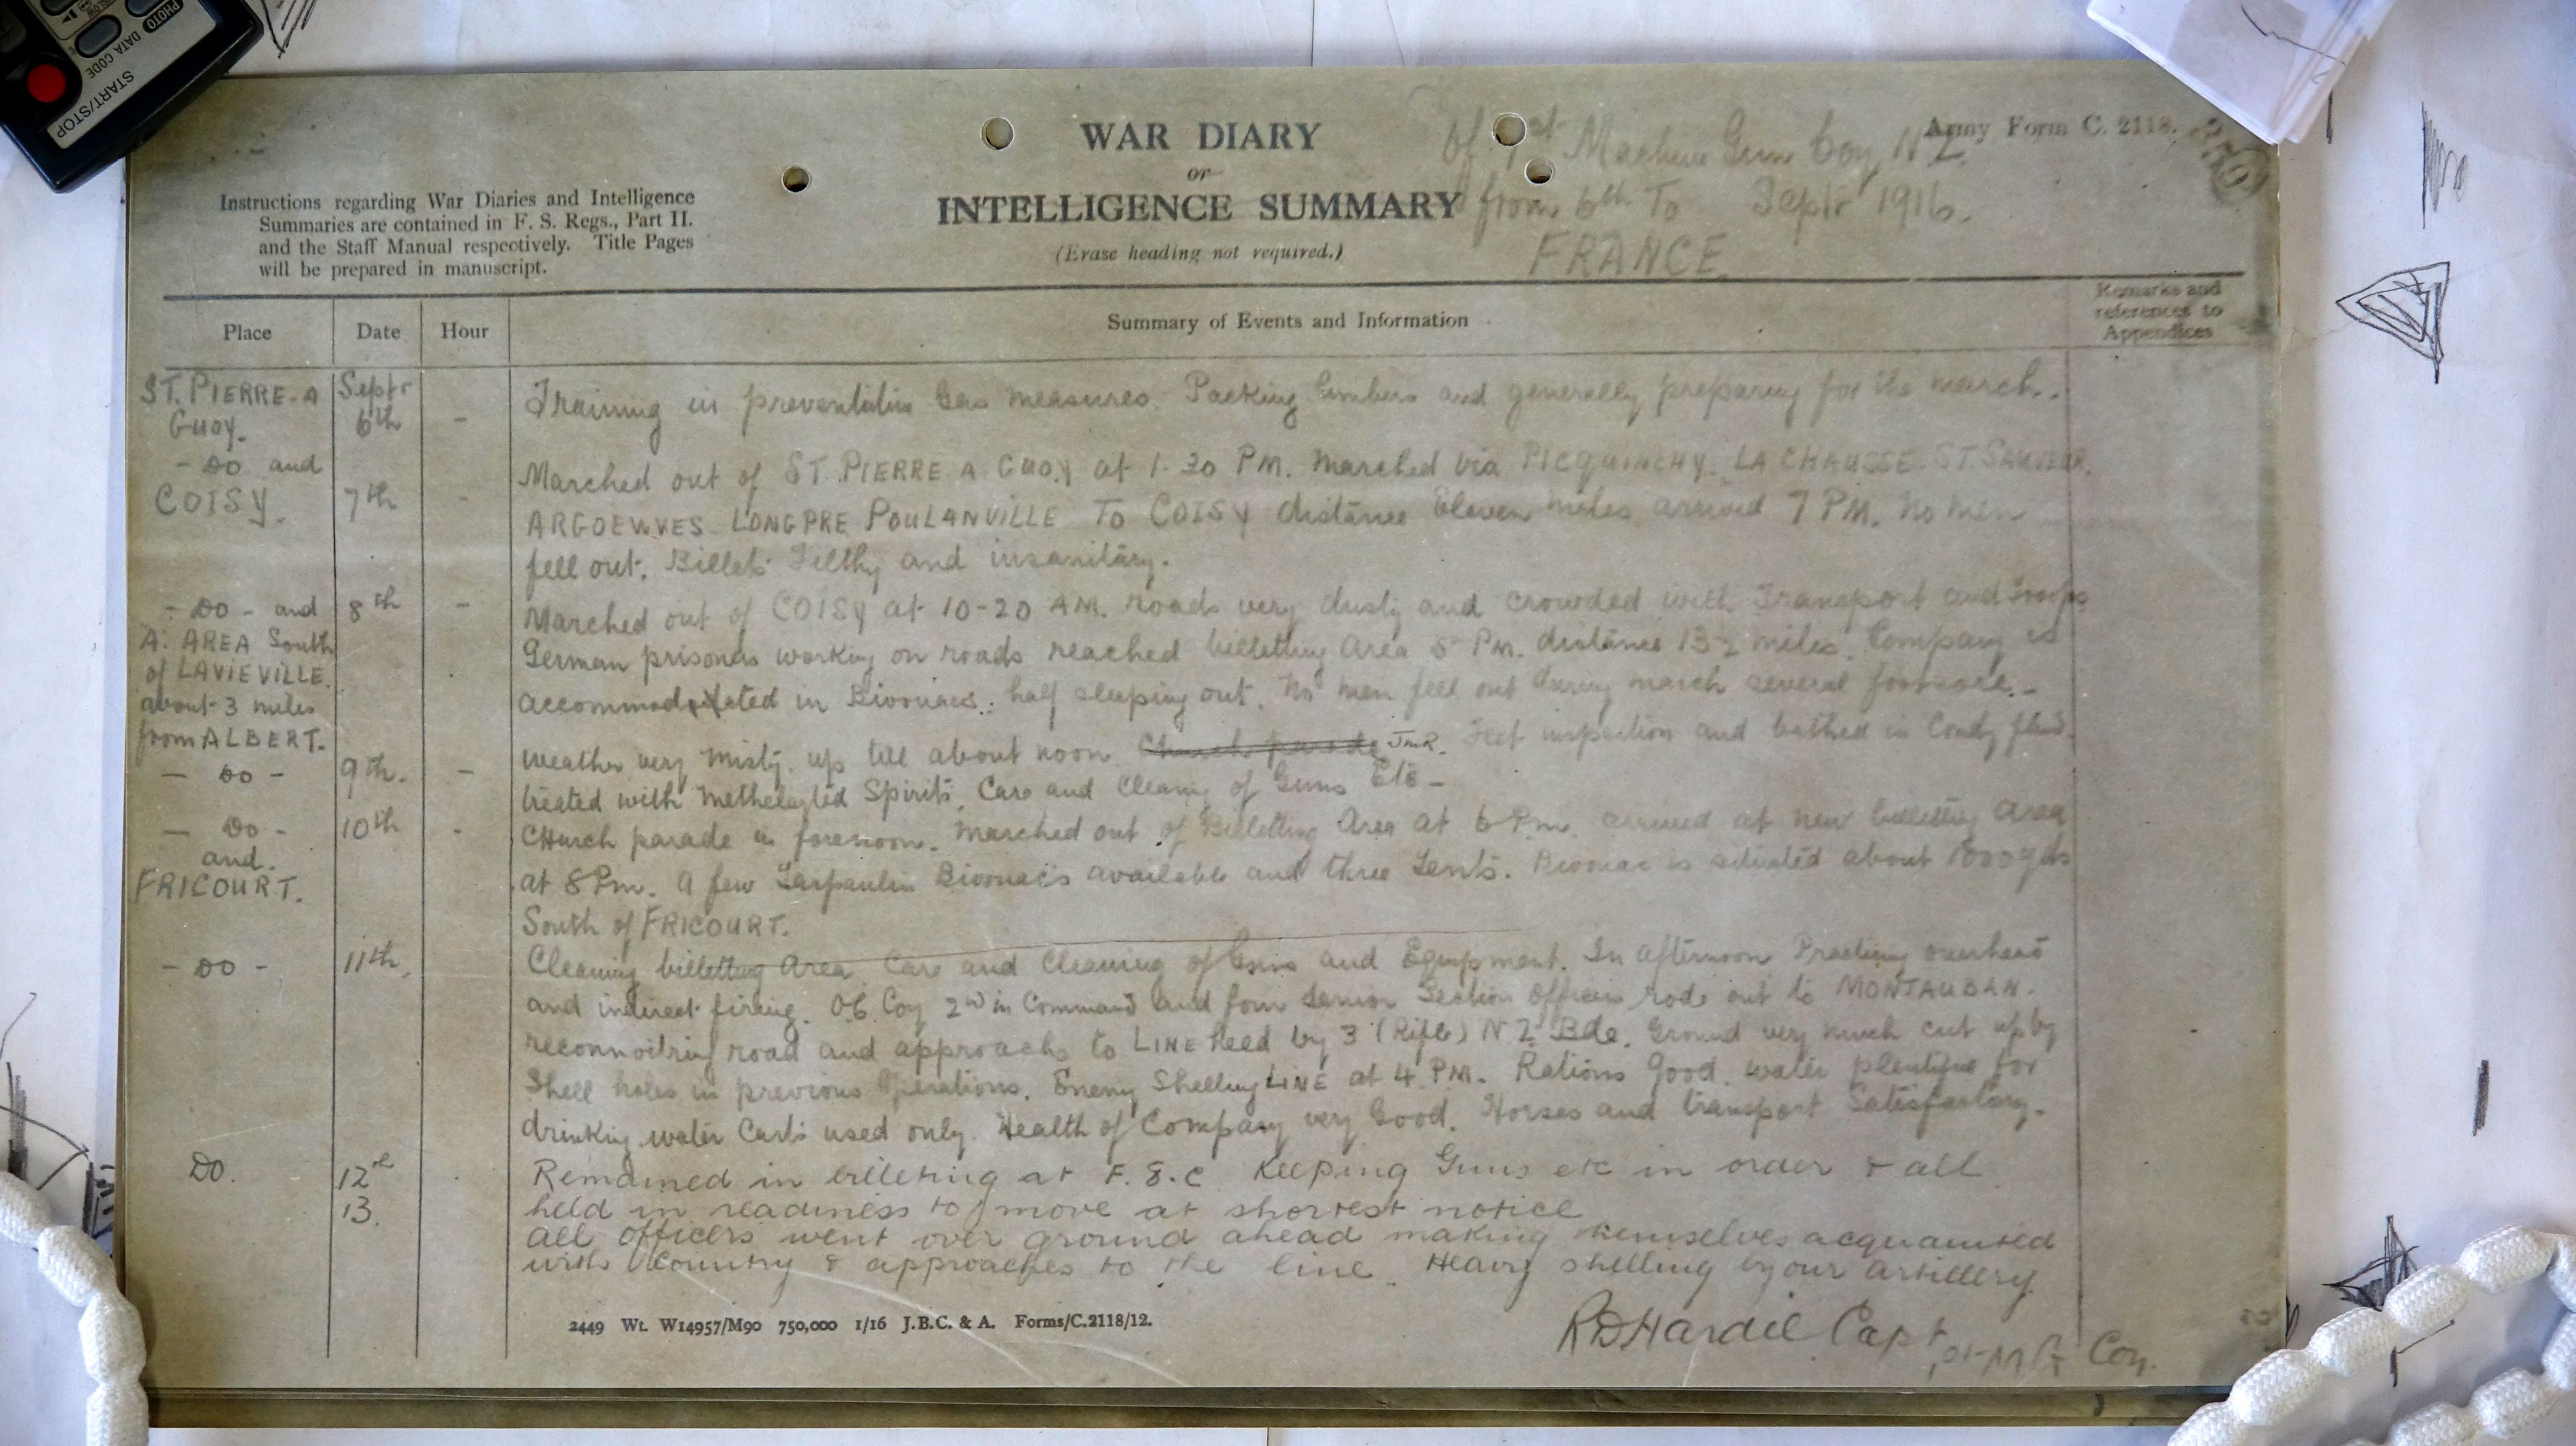 PHOTO
DATA CODE
START/STOP
WAR DIARY
or
INTELLIGENCE SUMMARY
(Erase heading not required.)
Army Form C. 2118.
of 1st Machine Gun Coy N.Z.
from 6th To Septr 1916.
FRANCE
Instructions regarding War Diaries and Intelligence
Summaries are contained in F. S. Regs., Part II.
and the Staff Manual respectively. Title Pages
will be prepared in manuscript.
Place Date Hour Summary of Events and Information Remarks and references to Appendices
ST. PIERRE-A Septr
Guoy. 6th - Training in preventative Gas measures. Packing limbers and generally preparing for the march.
- DO and
COISY. 7th - Marched out of ST. PIERRE A GUOY at 1-30 PM. Marched via PICQUINCHY LA CHAUSSE ST. SAUVEUR.
ARGOEWVES LONGPRE POULANVILLE TO COISY distance Eleven miles arrived 7 PM. No men
fell out. Billets Filthy and insanitary.
- DO - and 8th - Marched out of COISY at 10-20 AM. roads very dusty and crowded with Transport and Troops
A. AREA South German prisoners working on roads reached billetting Area 5 PM. distance 13½ miles. Company is
of LAVIEVILLE. accommodated in Bivouacs. half sleeping out. No men fell out during march several footsore.-
about 3 miles
from ALBERT.
- DO - 9th. - Weather very Misty. up till about noon. Church parade JMR. Feet inspection and bathed in Condy fluid.
treated with Methelayted Spirits, Care and Cleaning of Guns Etc -
- DO - 10th - CHurch parade in forenoon. Marched out of Billetting Area at 6 Pm. arrived at new billetting Area
and. at 8 Pm. A few Tarpaulin Bivouacs available and three Tents. Bivouac is situated about 1000 yds
FRICOURT. South of FRICOURT.
- DO - 11th, Cleaning billetting Area Care and Cleaning of Guns and Equipment. In afternoon Practing overhead
and indirect firing. OC. Coy 2nd in Command and four Senior Section Officers rode out to MONTAUBAN.
reconnoitring road and approachs to LINE held by 3 (Rifle) N Z Bde. Ground very much cut up by
Shell holes in previous Operations. Enemy Shelling LINE at 4 PM. Rations Good. water plentiful for
drinking water Carts used only. Health of Company very Good. Horses and transport Satisfactory.
DO. 12th Remained in billeting at F. 8. C Keeping Guns etc in order & all
13. held in readiness to move at shortest notice
all officers went over ground ahead making themselves acquainted
with country & approaches to the line. Heavy shelling by our artillery
2449 Wt. W14957/M90 750,000 1/16 J.B.C. & A. Forms/C.2118/12.
RDHardie Capt
1st M G Coy.